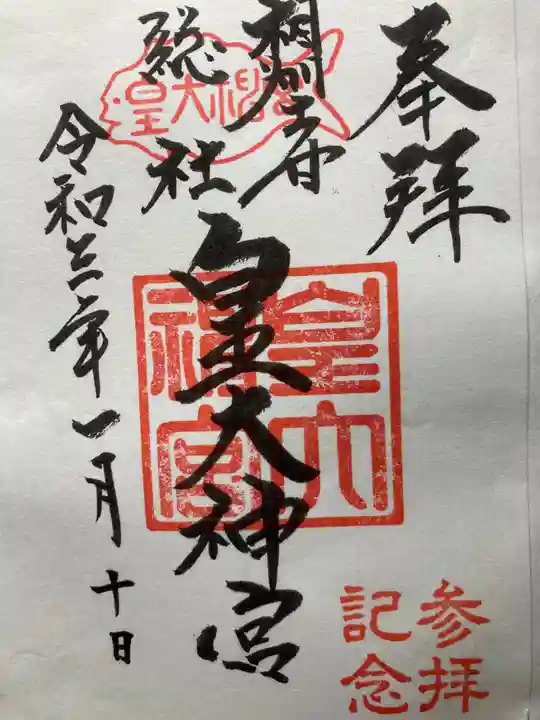 奉拝
相州土甘
総社
皇大神宮
令和三年一月十日
皇大神宮
皇大
神宮
参拝
記念